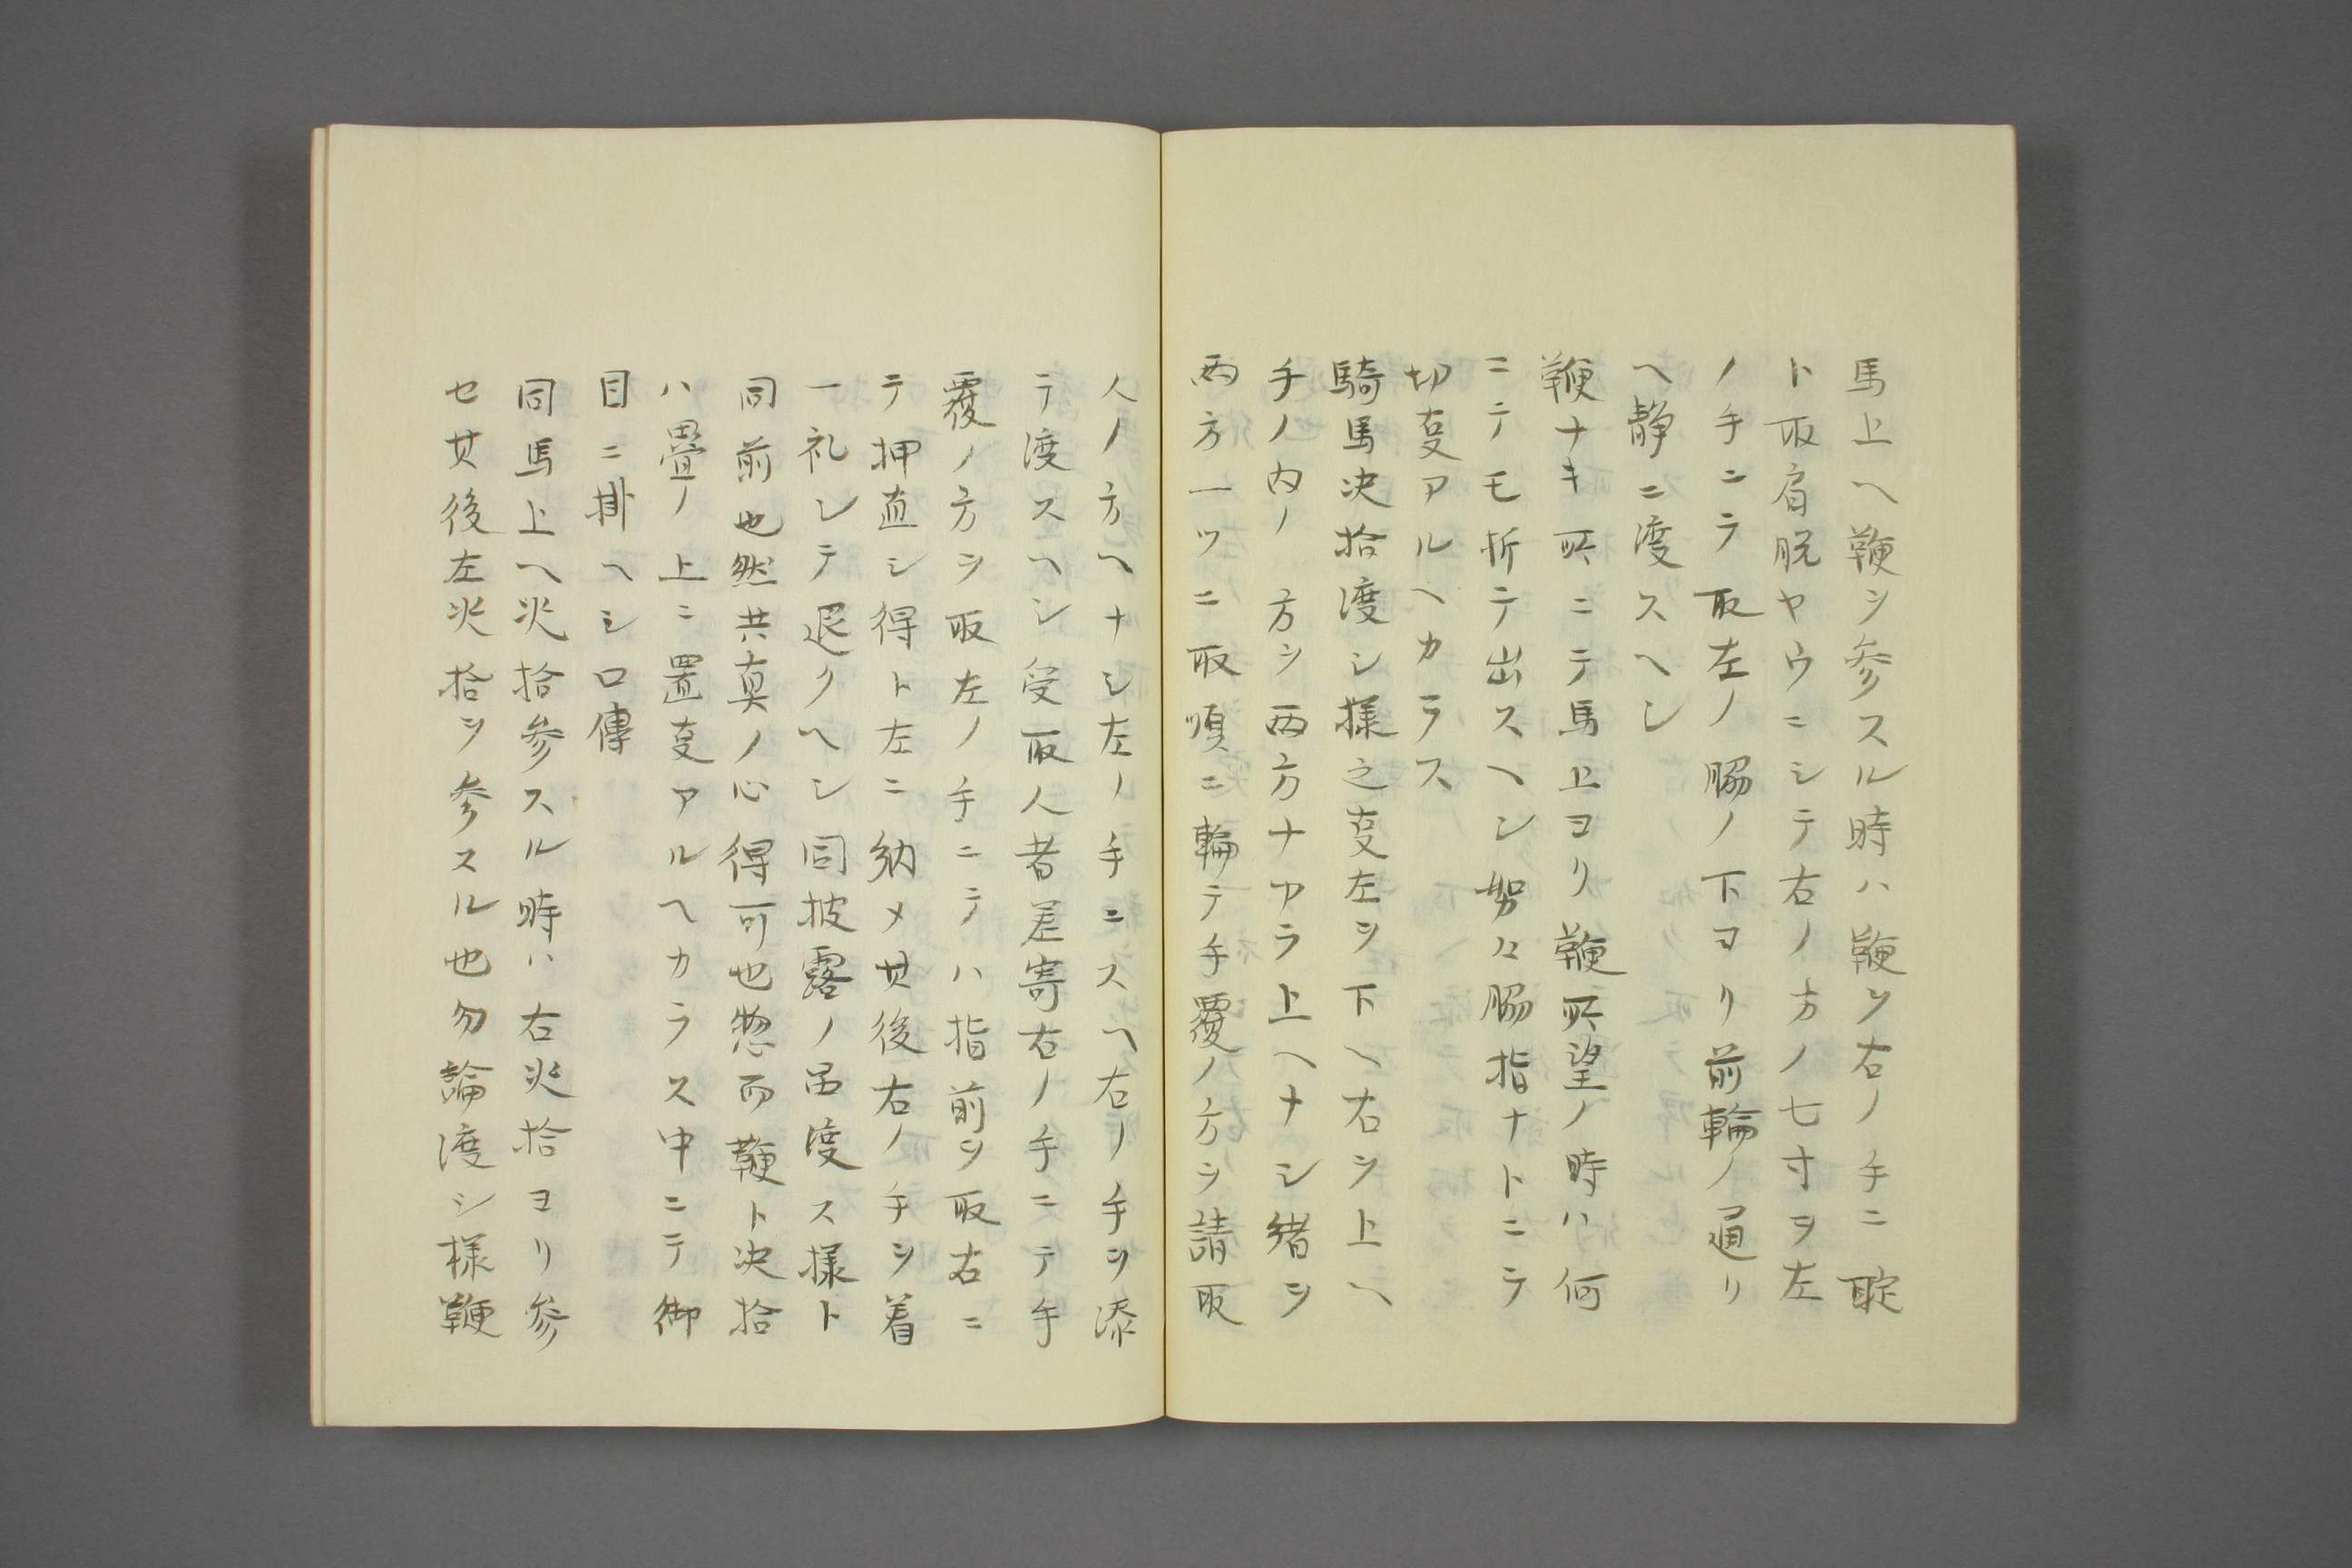 馬上ヘ鞭ヲ参スル時ハ鞭ヲ右ノ手ニ聢
ト取肩脱ヤウニシテ右ノ方ノ七寸ヲ左
ノ手ニテ取左ノ脇ノ下ヨリ前輪ノ通リ
ヘ静ニ渡スヘシ
鞭ナキ所ニテ馬上ヨリ鞭所望ノ時ハ何
ニテモ折テ出スヘシ努々脇指ナトニテ
切叓アルヘカラス
騎馬决拾渡シ様之叓左ヲ下ヘ右ヲ上ヘ
手ノ内ノ方ヲ両方ナカラ上ヘナシ緒ヲ
両方一ツニ取順ニ輪テ手覆ノ方ヲ請取
人ノ方ヘナシ左ノ手ニスヘ右ノ手ヲ添
テ渡スヘシ受取人者差寄右ノ手ニテ手
覆ノ方ヲ取左ノ手ニテハ指前ヲ取右ニ
テ押直シ得ト左ニ納メ其後右ノ手ヲ着
一礼シテ退クヘシ同披露ノ品渡ス様ト
同前也然共真ノ心得可也惣而鞭ト决拾
ハ畳ノ上ニ置叓アルヘカラス中ニテ御
目ニ掛ヘシ口傳
同馬上ヘ决拾参スル時ハ右决拾ヨリ参
セ其後左决拾ヲ参スル也勿論渡シ様鞭